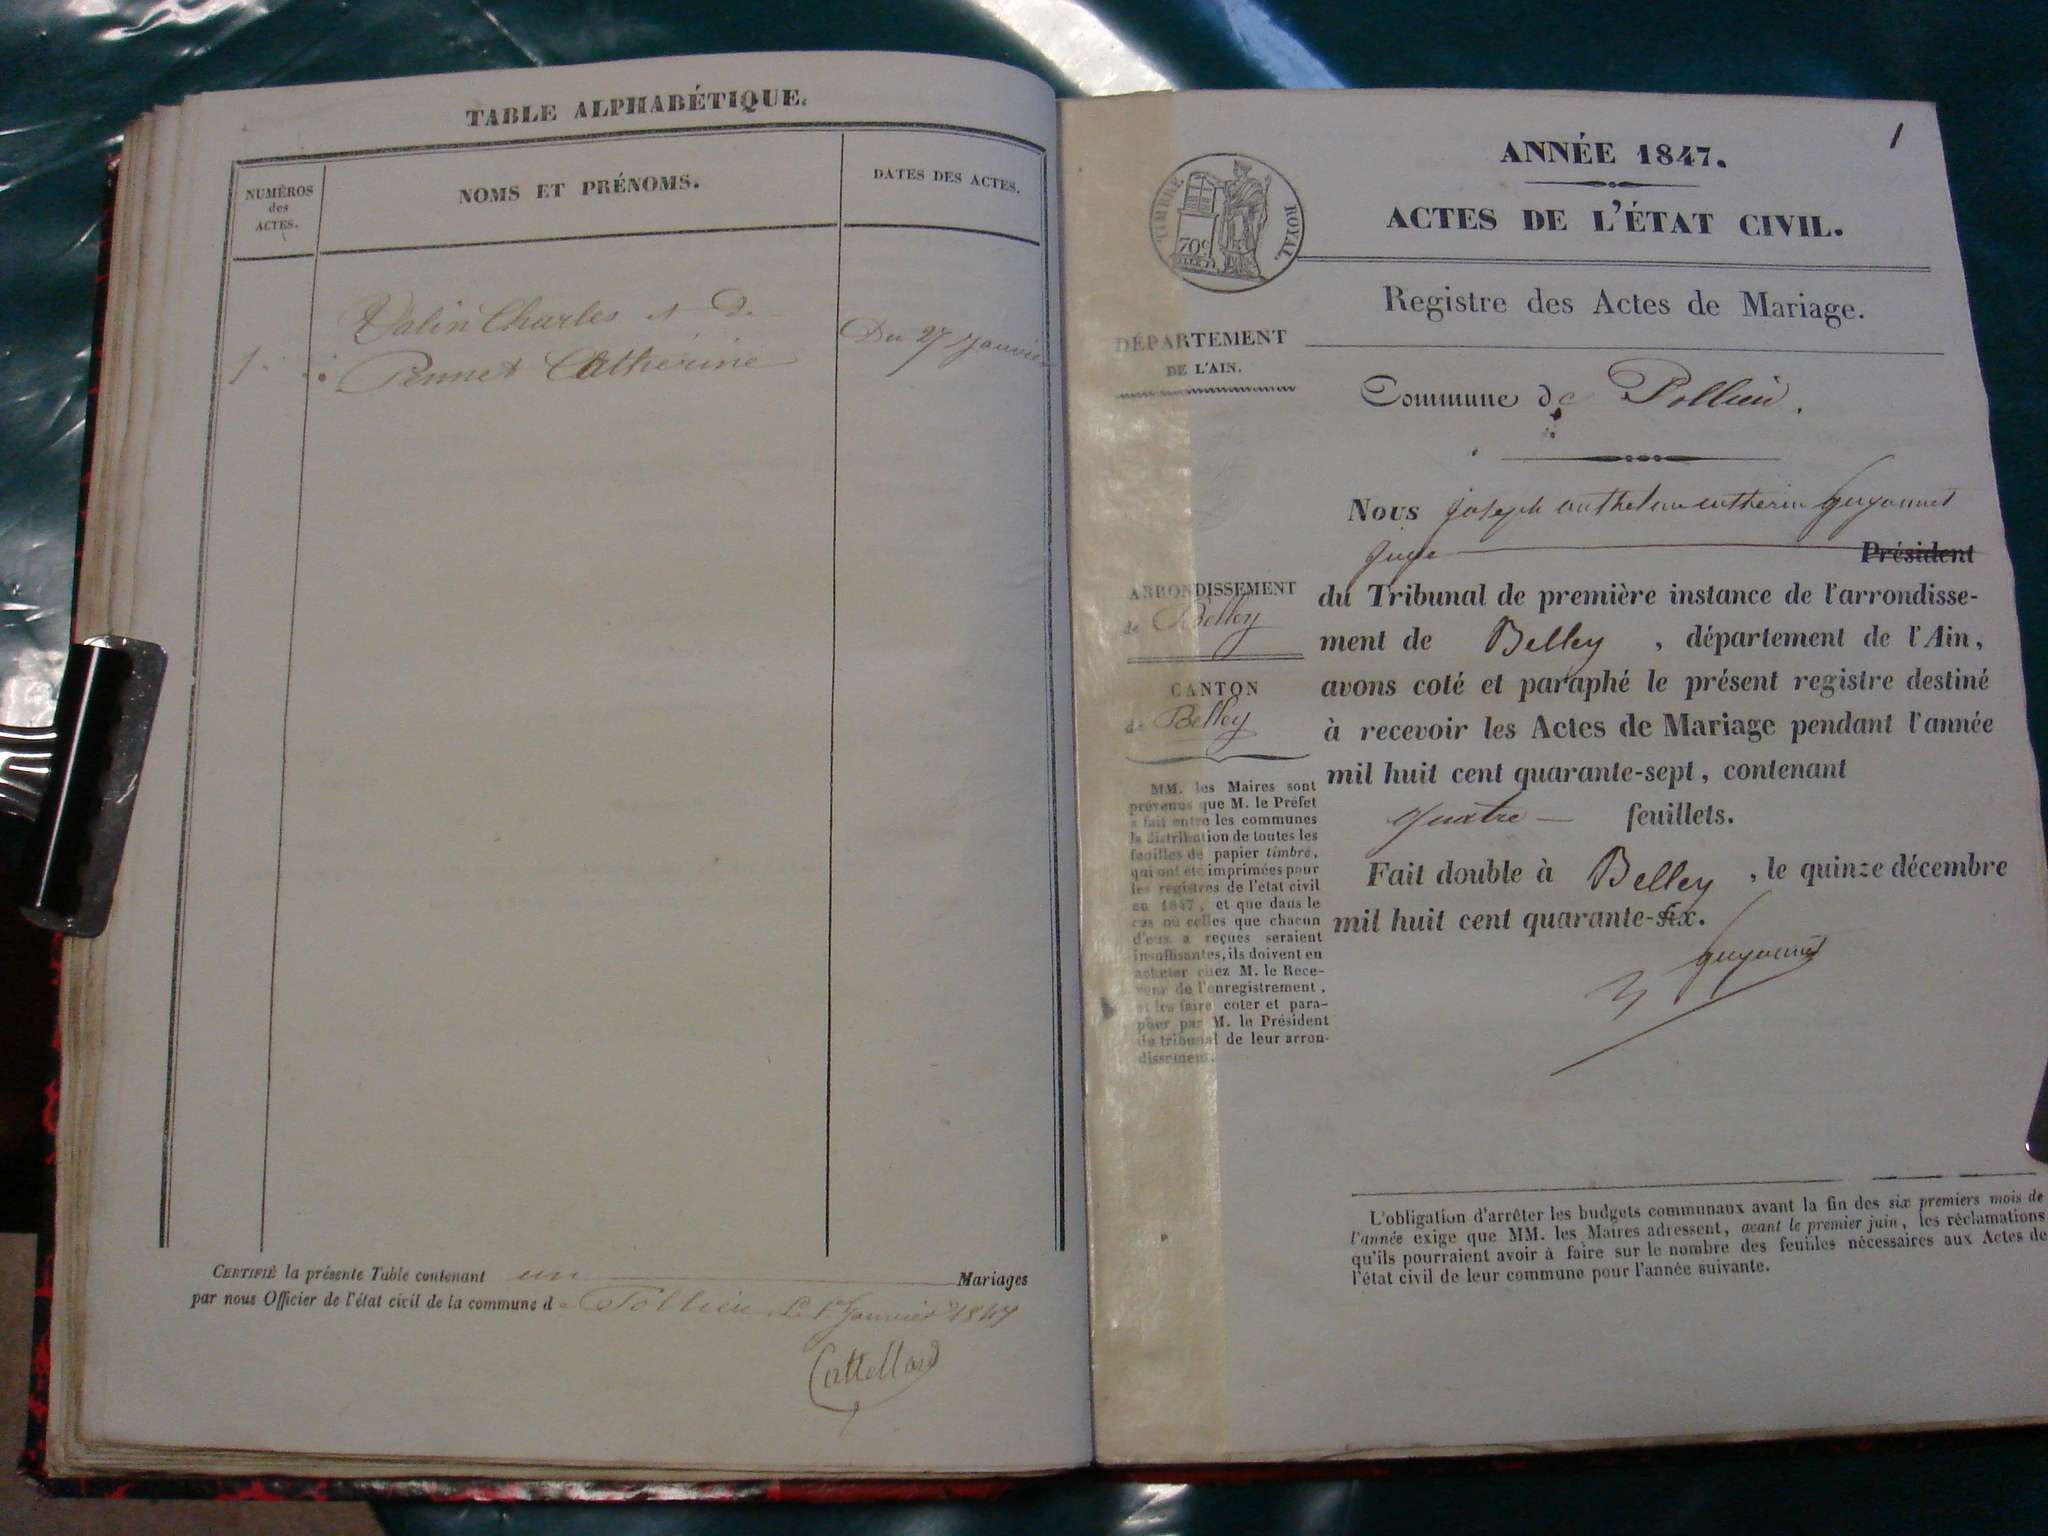 TABLE ALPHABÉTIQUE.
NUMÉROS
des
ACTES.
NOMS ET PRÉNOMS.
DATES DES ACTES.
Valin Charles et De
1. Pennet Catherine
Du 27 Janvier
CERTIFIÉ la présente Table contenant un Mariages
par nous Officier de l'état civil de la commune de Pollieu Le 1er Janvier 1847
1
ANNÉE 1847.
ACTES DE L'ÉTAT CIVIL.
TIMBRE ROYAL
70c
Registre des Actes de Mariage.
DÉPARTEMENT
DE L'AIN.
Commune de Pollieu.
Nous Joseph anthelme Guyonnet
juge Président
ARRONDISSEMENT
de Belley
CANTON
de Belley
du Tribunal de première instance de l'arrondisse-
ment de Belley, département de l'Ain,
avons coté et paraphé le présent registre destiné
à recevoir les Actes de Mariage pendant l'année
mil huit cent quarante-sept, contenant
quatre feuillets.
Fait double à Belley, le quinze décembre
mil huit cent quarante-six.
Guyonnet
MM. les Maires sont
prévenus que M. le Préfet
a fait entre les communes
la distribution de toutes les
feuilles de papier timbré,
qui ont été imprimées pour
les registres de l'état civil
en 1847, et que dans le
cas où celles que chacun
d'eux a reçues seraient
insuffisantes, ils doivent en
acheter chez M. le Rece-
veur de l'enregistrement,
et les faire coter et para-
pher par M. le Président
du tribunal de leur arron-
dissement.
L'obligation d'arrêter les budgets communaux avant la fin des six premiers mois de
l'année exige que MM. les Maires adressent, avant le premier juin, les réclamations
qu'ils pourraient avoir à faire sur le nombre des feuilles nécessaires aux Actes de
l'état civil de leur commune pour l'année suivante.